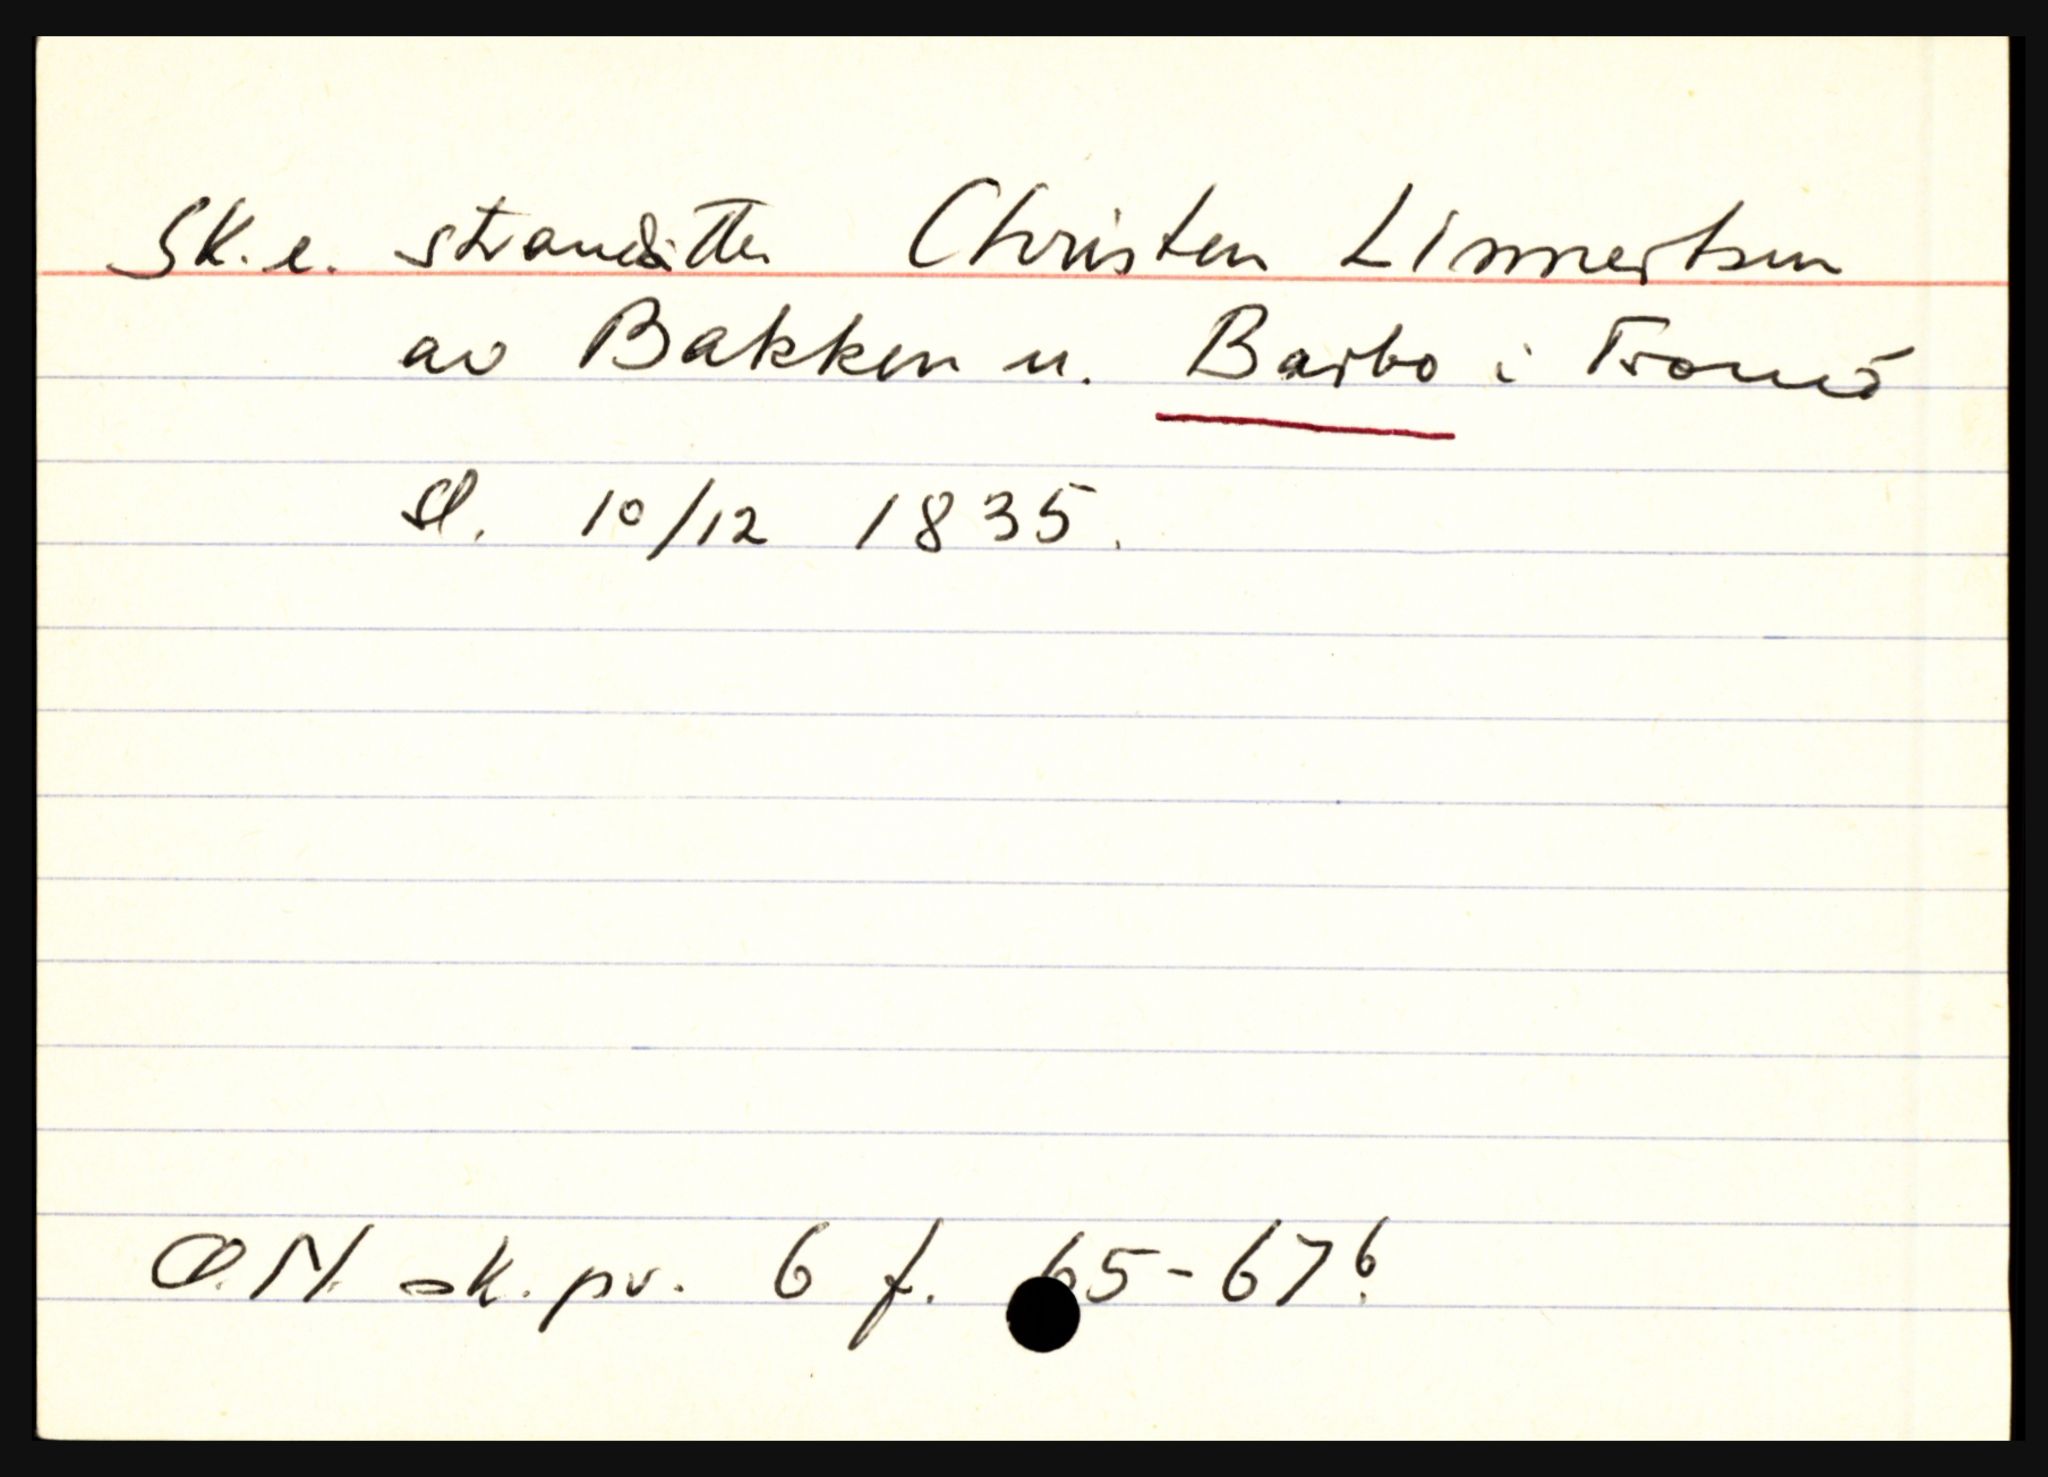 Sk. e. strandsitter Christen Linnertsen
av Bakken u. Barbo i Tromö
Sl. 10/12 1835.
Ø.N. sk. pr. 6 f. 65-67b.